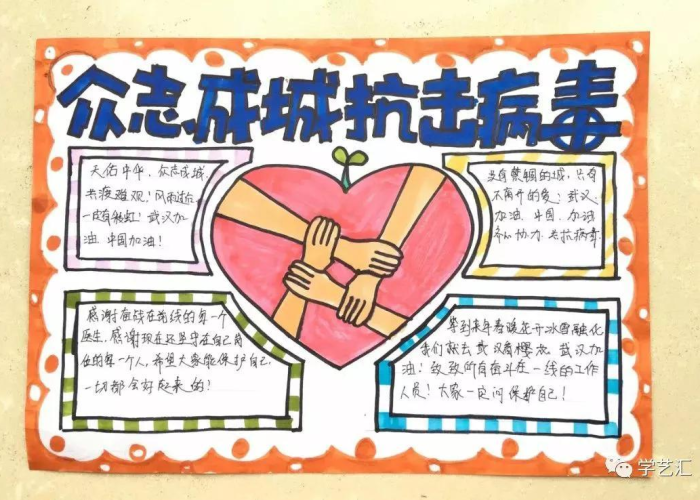 众志成城抗击病毒
天佑中华，众志成城，
共渡难观！风雨过后
一定有彩虹！武汉加
油，中国加油！
没有禁锢的城，只有
不离开的爱；武汉
加油，中国，加油
齐心协力，共抗病毒
感谢奋战在前线的每一个
医生，感谢现在还坚守在自己岗
位的每一个人，希望大家能保护自己，
一切都会好起来的！
等到来年春暖花开冰雪融化
我们就去武汉看樱花，武汉加
油！致敬所有奋斗在一线的工作
人员！大家一定 保护自己！
学艺汇